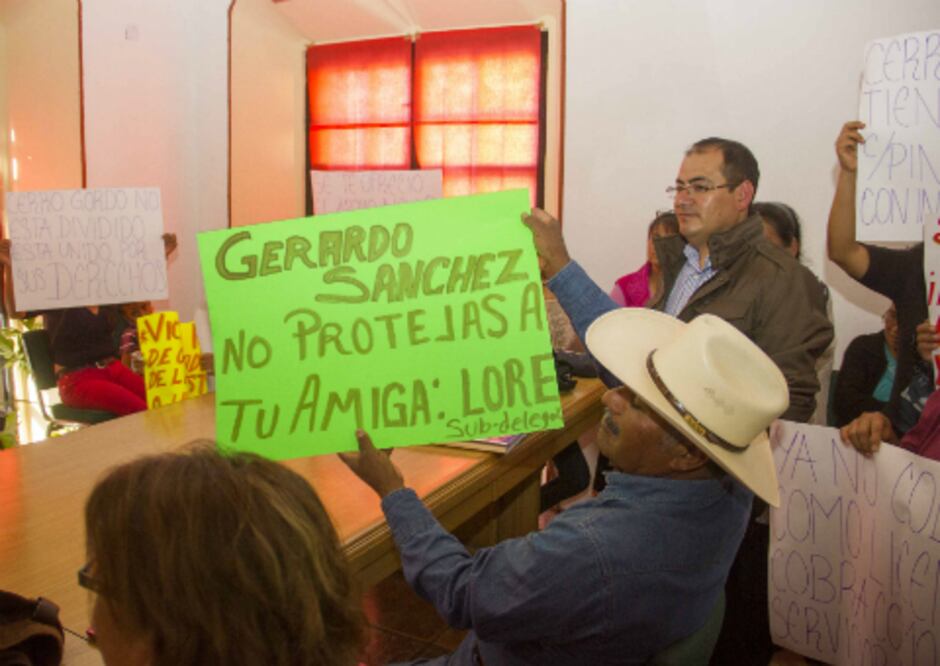 CERRO GORDO NO
ESTA DIVIDIDO
ESTA UNIDO POR
SUS DERECHOS
SE TE OFRECIO
GERARDO
SANCHEZ
NO PROTEJAS A
TU AMIGA: LORE
Sub-delega
CERR
TIEN
C/PIN
CON IN
YA NO
COMO
COBRA
SERV